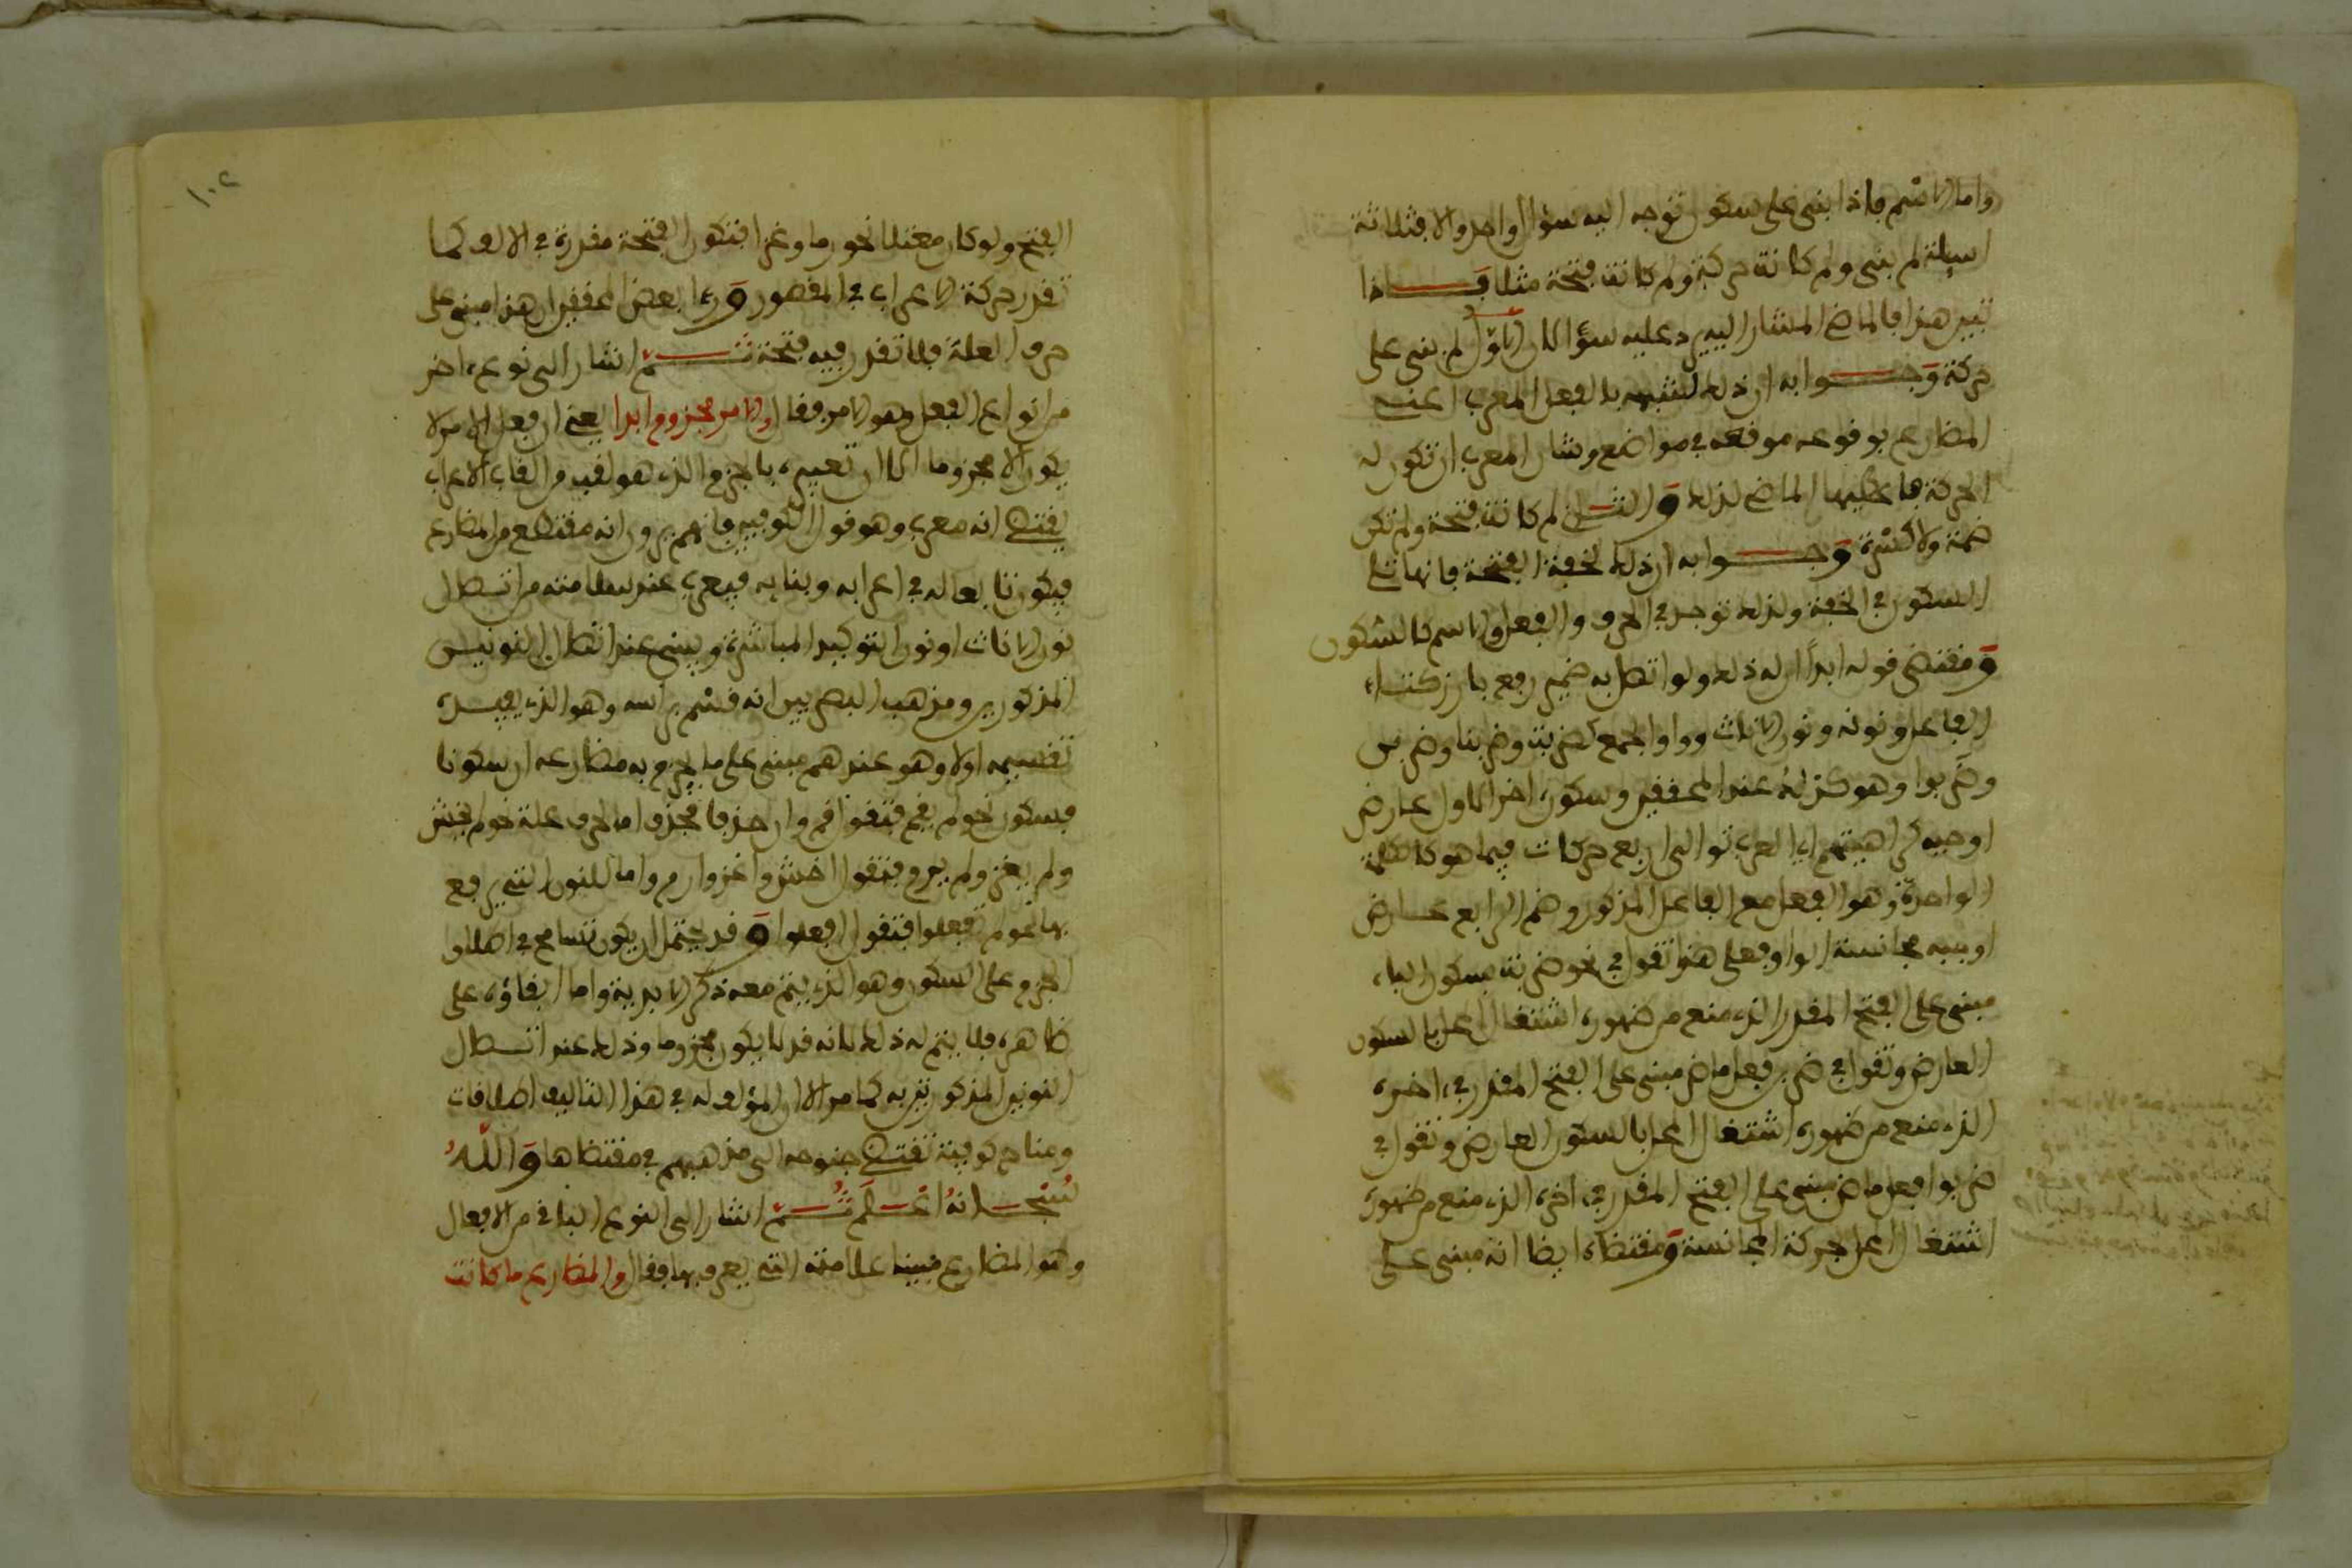 واما الاسم فاذا بني على سكون توجه اليه سؤال واحد والا فثلاثة
اسيلة لم بني ولم كانت حركة ولم كانت فتحة مثلا فاذا
تبين هذا فالماضي المشار اليه يرد عليه سؤالان الاول لم بني على
حركة وجوابه ان ذلك لشبهه بالفعل المعرب اعني
المضارع بوقوعه موقعه في مواضع وشان المعرب ان تكون له
الحركة فاعطيها الماضي لذلك والثاني لم كانت فتحة ولم تكن
ضمة ولا كسرة وجوابه ان ذلك لخفة الفتحة فانها تلي
السكون في الخفة ولذلك توجد في الحرف والفعل والاسم كالسكون
ومقتضى قوله ابدا ان له ذلك ولو اتصل به ضمير رفع بارز كتاء
الفاعل ونونه ونون الاناث وواو الجمع كضربت وضربنا وضربن
وضربوا وهو كذلك عند المحققين وسكون اخر الاول عارض
اوجبه كراهيتهم اي العرب توالى اربع حركات فيما هو كالكلمة
الواحدة وهو الفعل مع الفاعل المذكور وضم الرابع عارض
اوجبه مجانسة الواو فعلى هذا تقول في نحو ضربت بسكون الباء
مبني على الفتح المقدر الذي منع من ظهوره اشتغال المحل بالسكون
العارض وتقول في ضربن فعل ماض مبني على الفتح المقدر في اخره
الذي منع من ظهوره اشتغال المحل بالسكون العارض وتقول في
ضربوا فعل ماض مبني على الفتح المقدر في اخره الذي منع من ظهوره
اشتغال المحل بحركة المجانسة ومقتضاه ايضا انه مبني على
١٠٢
الفتح ولو كان معتلا نحو رما وغزا فتكون الفتحة مقدرة في الالف كما
تقدر حركة الاعراب في المقصور وراى بعض المحققين ان هذا مبني على
حرف العلة فلا تقدر فيه فتحة ثم اشار الى نوع اخر
من انواع الفعل وهو الامر فقال والامر مجزوم ابدا يعني ان فعل الامر لا
يكون الا مجزوما الا ان تعبيره بالجزم الذي هو لقب من القاب الاعراب
يقتضي انه معرب وهو قول الكوفيين فانهم يرون انه مقتطع من المضارع
فيكون تابعا له في اعرابه وبنايه فيعرب عند سلامته من اتصال
نون الاناث او نون التوكيد المباشرة ويبنى عند اتصال النونين
المذكورين ومذهب البصريين انه قسم براسه وهو الذي يفيده
تقسيمه اولا وهو عندهم مبني على ما يجزم به مضارعه ان سكونا
فسكون نحو لم يقم فتقول قم وان حذفا فحذف اما لحرف علة نحو لم يخش
ولم يغز ولم يرم فتقول اخش واغز وارم واما للنون التي يرفع
بها نحو لم تفعلوا فتقول افعلوا وقد يحتمل ان يكون تسامح في اطلاق
الجزم على السكون وهو الذي يتم معه ذكر الابدية واما ابقاؤه على
ظاهره فلا يتم له ذلك لانه قد لا يكون مجزوما وذلك عند اتصال
النونين المذكورتين به كما مر الا ان المؤلف له في هذا التاليف اطلاقات
ومناح كوفية تقتضي جنوحه الى مذهبهم في مقتضاها والله
سبحانه اعلم ثم اشار الى النوع الباقي من الافعال
وهو المضارع مبينا علامته التي يعرف بها فقال والمضارع ما كانت